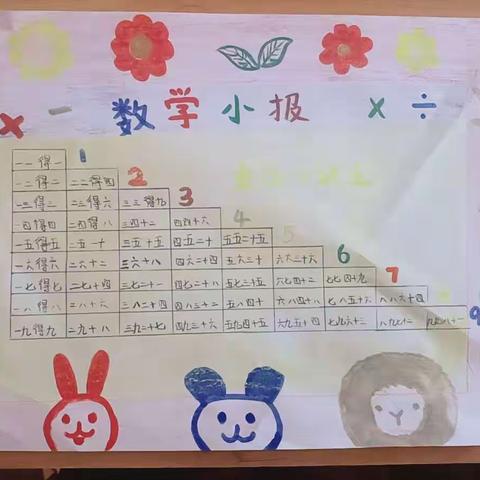 × - 数学小报 × ÷
一一得一 1
一二得二 二二得四 2
一三得三 二三得六 三三得九 3
一四得四 二四得八 三四十二 四四十六 4
一五得五 二五一十 三五十五 四五二十 五五二十五 5
一六得六 二六十二 三六十八 四六二十四 五六三十 六六三十六 6
一七得七 二七十四 三七二十一 四七二十八 五七三十五 六七四十二 七七四十九 7
一八得八 二八十六 三八二十四 四八三十二 五八四十 六八四十八 七八五十六 八八六十四
一九得九 二九十八 三九二十七 四九三十六 五九四十五 六九五十四 七九六十三 八九七十二 九九八十一 9